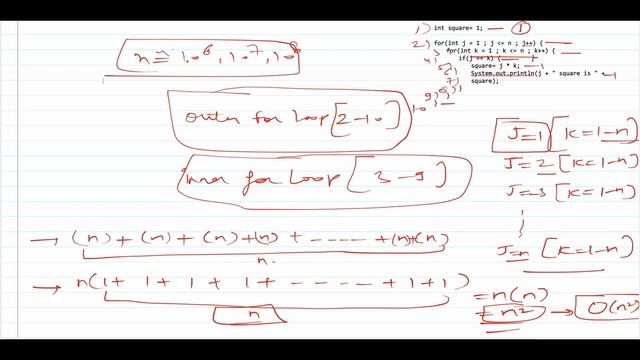 1) int square= 1; — ①
2) for(int j = 1 ; j <= n ; j++) {
3 for(int k = 1 ; k <= n ; k++) {
4) if(j == k) {
5) square= j * k; — 1
6) System.out.println(j + " square is " +
7) square);
8) }
9) }
10) }
n ≅ 10^6, 10^7, 10^8
outer for loop [2-10]
inner for loop [3-9]
J=1 [K=1-n]
J=2 [K=1-n]
J=3 [K=1-n]
J=n [K=1-n]
→ (n) + (n) + (n) + (n) + ----- + (n)+(n)
n
→ n(1+ 1+ 1 + 1+ ----- + 1+1)
n
=n(n)
= n² → O(n²)